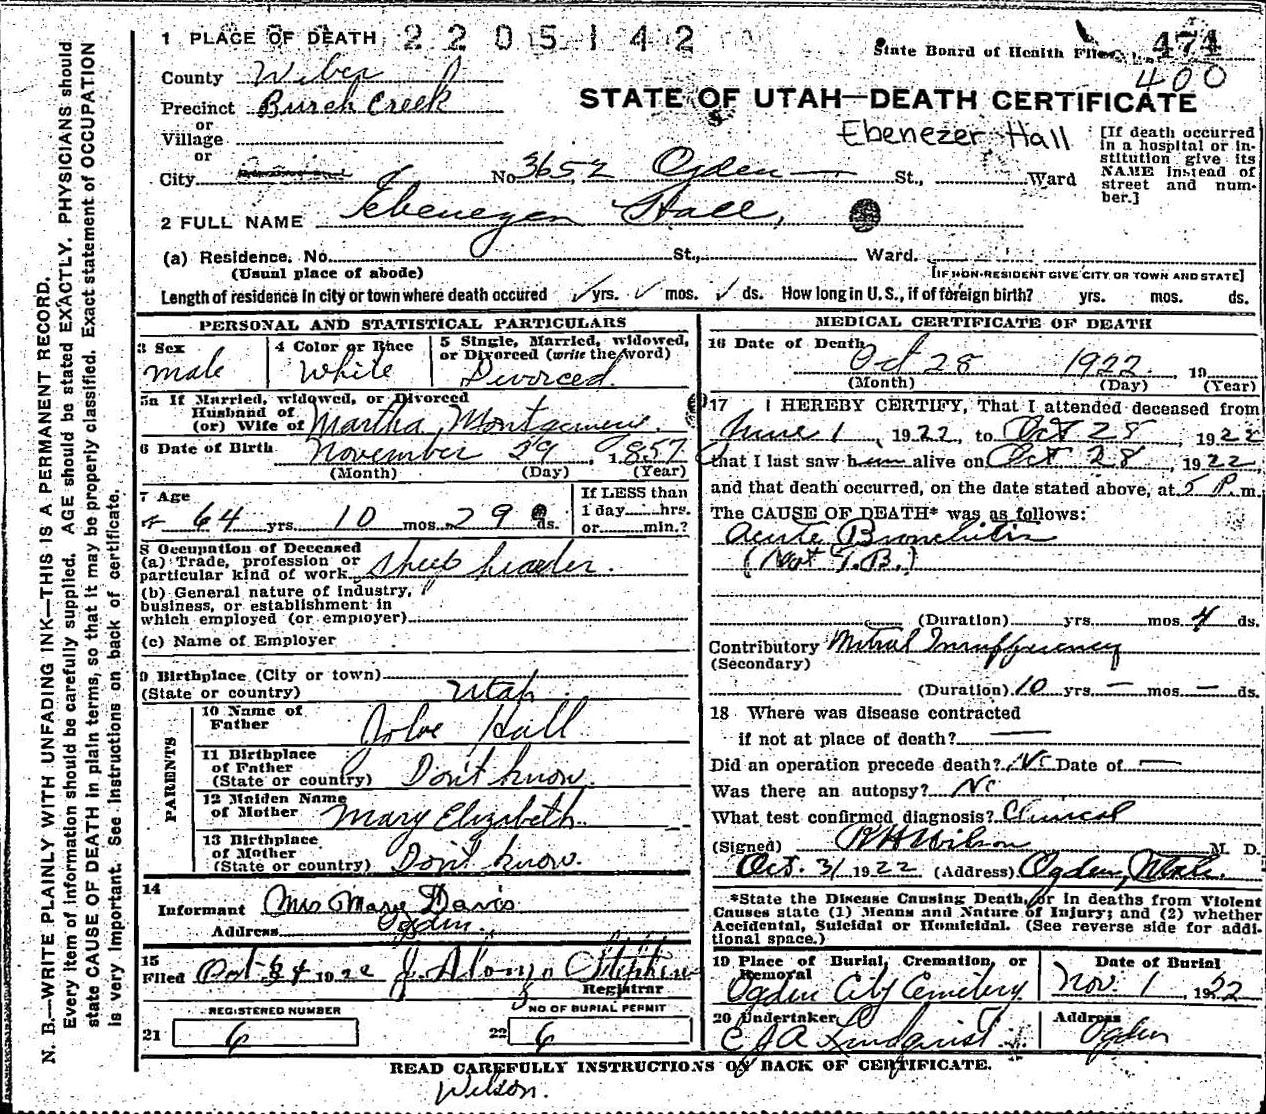 1 PLACE OF DEATH 2205142
State Board of Health File No. 474
400
County Weber
Precinct Burch Creek
or
Village
or
City No. 3652 Ogden St., Ward
STATE OF UTAH—DEATH CERTIFICATE
Ebenezer Hall
[If death occurred
in a hospital or in-
stitution give its
NAME instead of
street and num-
ber.]
2 FULL NAME Ebenezer Hall,
(a) Residence. No. St., Ward.
(Usual place of abode)
[IF NON-RESIDENT GIVE CITY OR TOWN AND STATE]
Length of residence in city or town where death occured ✓ yrs. ✓ mos. ✓ ds. How long in U. S., if of foreign birth? yrs. mos. ds.
PERSONAL AND STATISTICAL PARTICULARS
3 Sex
male
4 Color or Race
White
5 Single, Married, widowed,
or Divorced (write the word)
Divorced
5a If Married, widowed, or Divorced
Husband of
(or) Wife of Martha
6 Date of Birth November 29, 1857
(Month) (Day) (Year)
7 Age
64 yrs. 10 mos. 29 ds.
If LESS than
1 day hrs.
or min.?
8 Occupation of Deceased
(a) Trade, profession or
particular kind of work Sheep
(b) General nature of industry,
business, or establishment in
which employed (or employer)
(c) Name of Employer
9 Birthplace (City or town)
(State or country) Utah
PARENTS
10 Name of
Father Hall
11 Birthplace
of Father
(State or country) Don't know.
12 Maiden Name
of Mother Mary Elizabeth
13 Birthplace
of Mother
(State or country) Don't know.
14
Informant Mrs Mary Davis
Address Ogden.
15
Filed Oct 192 J. Alonzo Stephens
Registrar
REGISTERED NUMBER
21 6
NO OF BURIAL PERMIT
22 6
MEDICAL CERTIFICATE OF DEATH
16 Date of Death
Oct 28 1922 19
(Month) (Day) (Year)
17 I HEREBY CERTIFY, That I attended deceased from
June 1, 1922, to Oct 28, 1922
that I last saw him alive on Oct 28, 1922,
and that death occurred, on the date stated above, at 5 P. m.
The CAUSE OF DEATH* was as follows:
Acute Bronchitis
(Not T.B.)
(Duration) yrs. mos. 4 ds.
Contributory Mitral Insufficiency
(Secondary)
(Duration) 10 yrs. — mos. — ds.
18 Where was disease contracted
if not at place of death? —
Did an operation precede death? No Date of —
Was there an autopsy? No
What test confirmed diagnosis? Clinical
(Signed) R H Wilson M. D.
Oct. 31 1922 (Address) Ogden, Utah.
*State the Disease Causing Death, or in deaths from Violent
Causes state (1) Means and Nature of Injury; and (2) whether
Accidental, Suicidal or Homicidal. (See reverse side for addi-
tional space.)
19 Place of Burial, Cremation, or
Removal
Ogden City Cemetery
Date of Burial
Nov. 1, 1922
20 Undertaker
Lindquist
Address
Ogden
READ CAREFULLY INSTRUCTIONS ON BACK OF CERTIFICATE.
Wilson.
N. B.—WRITE PLAINLY WITH UNFADING INK—THIS IS A PERMANENT RECORD.
Every item of information should be carefully supplied. AGE should be stated EXACTLY. PHYSICIANS should
state CAUSE OF DEATH in plain terms, so that it may be properly classified. Exact statement of OCCUPATION
is very important. See instructions on back of certificate.